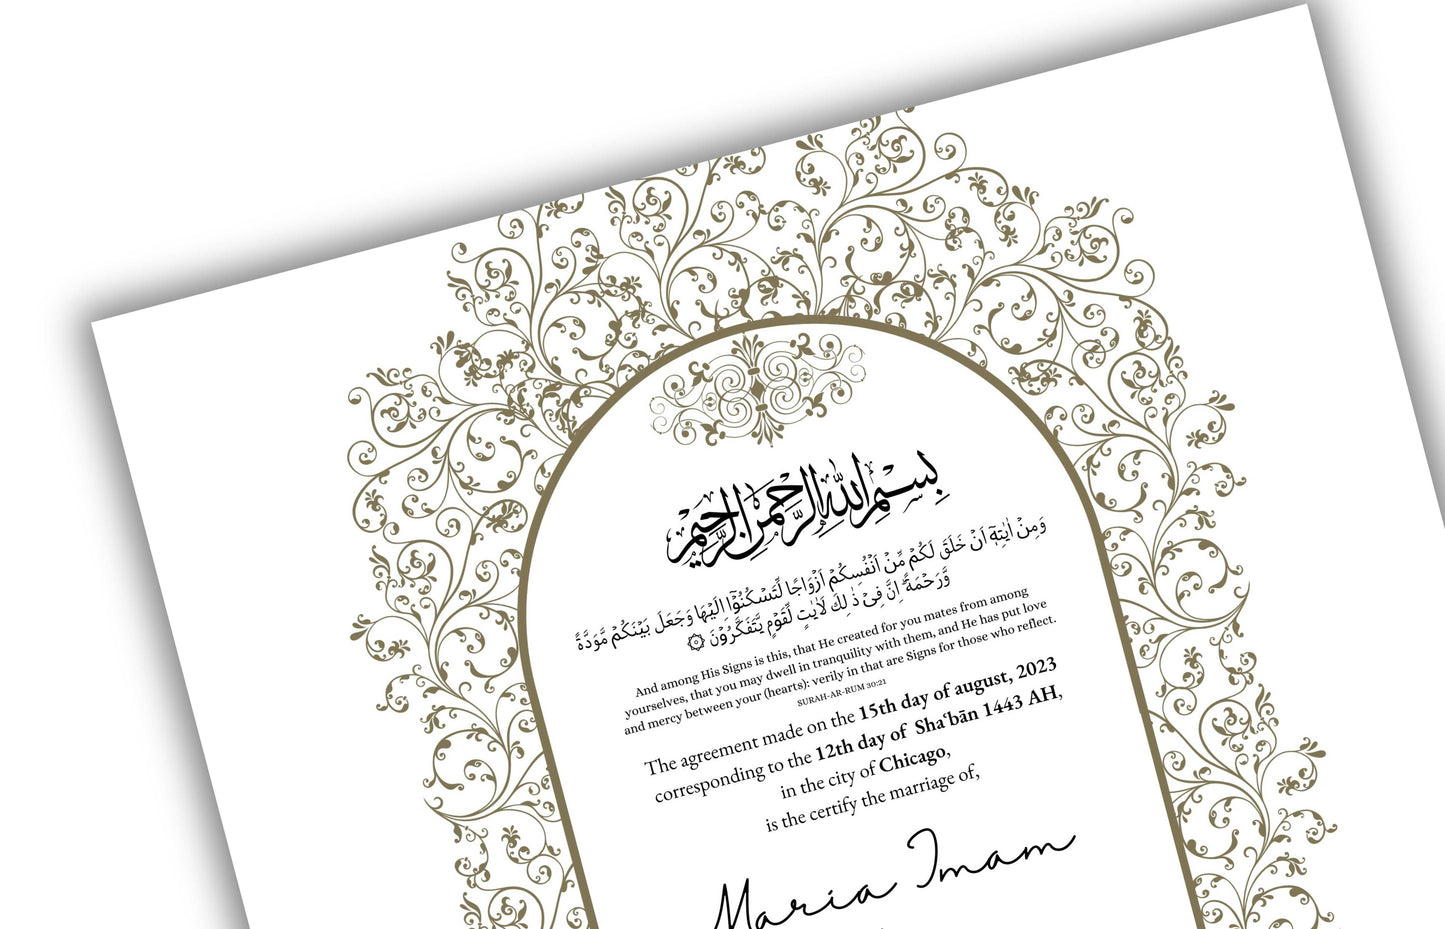 بِسْمِ اللهِ الرَّحْمٰنِ الرَّحِيْمِ
وَمِنْ اٰيٰتِهٖٓ اَنْ خَلَقَ لَكُمْ مِّنْ اَنْفُسِكُمْ اَزْوَاجًا لِّتَسْكُنُوْٓا اِلَيْهَا وَجَعَلَ بَيْنَكُمْ مَّوَدَّةً
وَّرَحْمَةً ۗ اِنَّ فِيْ ذٰ لِكَ لَاٰيٰتٍ لِّقَوْمٍ يَّتَفَكَّرُوْنَ
And among His Signs is this, that He created for you mates from among
yourselves, that you may dwell in tranquility with them, and He has put love
and mercy between your (hearts): verily in that are Signs for those who reflect.
SURAH-AR-RUM 30:21
The agreement made on the 15th day of august, 2023
corresponding to the 12th day of Sha‘bān 1443 AH,
in the city of Chicago,
is the certify the marriage of,
Maria Imam